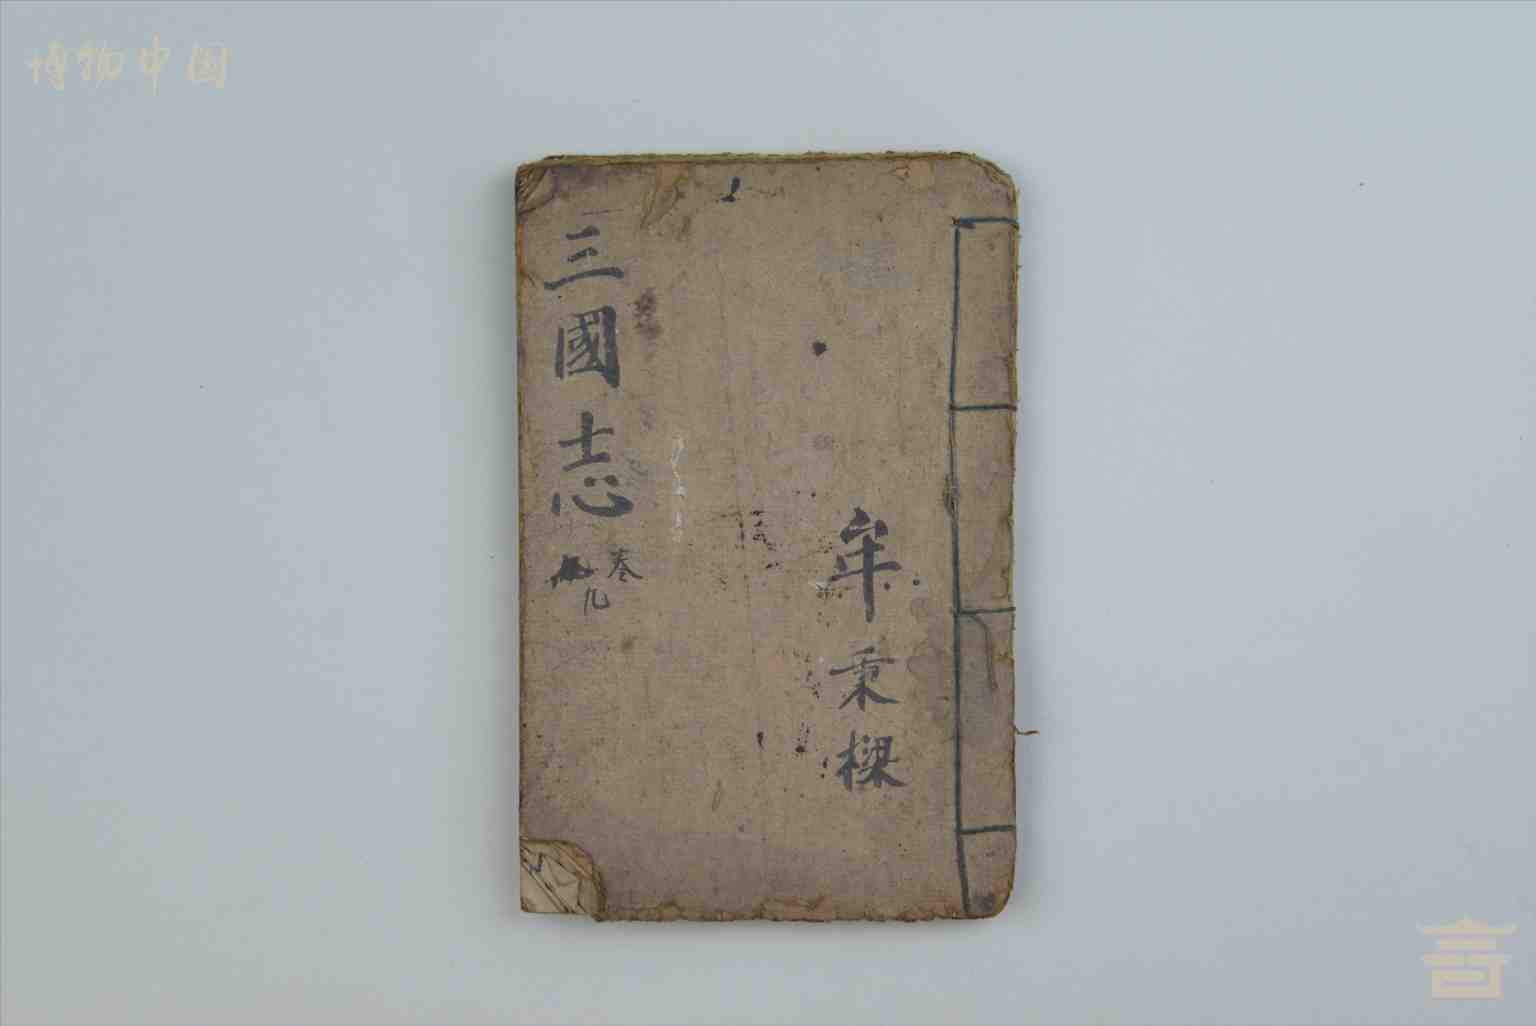 博物中国
三國志
卷九
牟秉樑